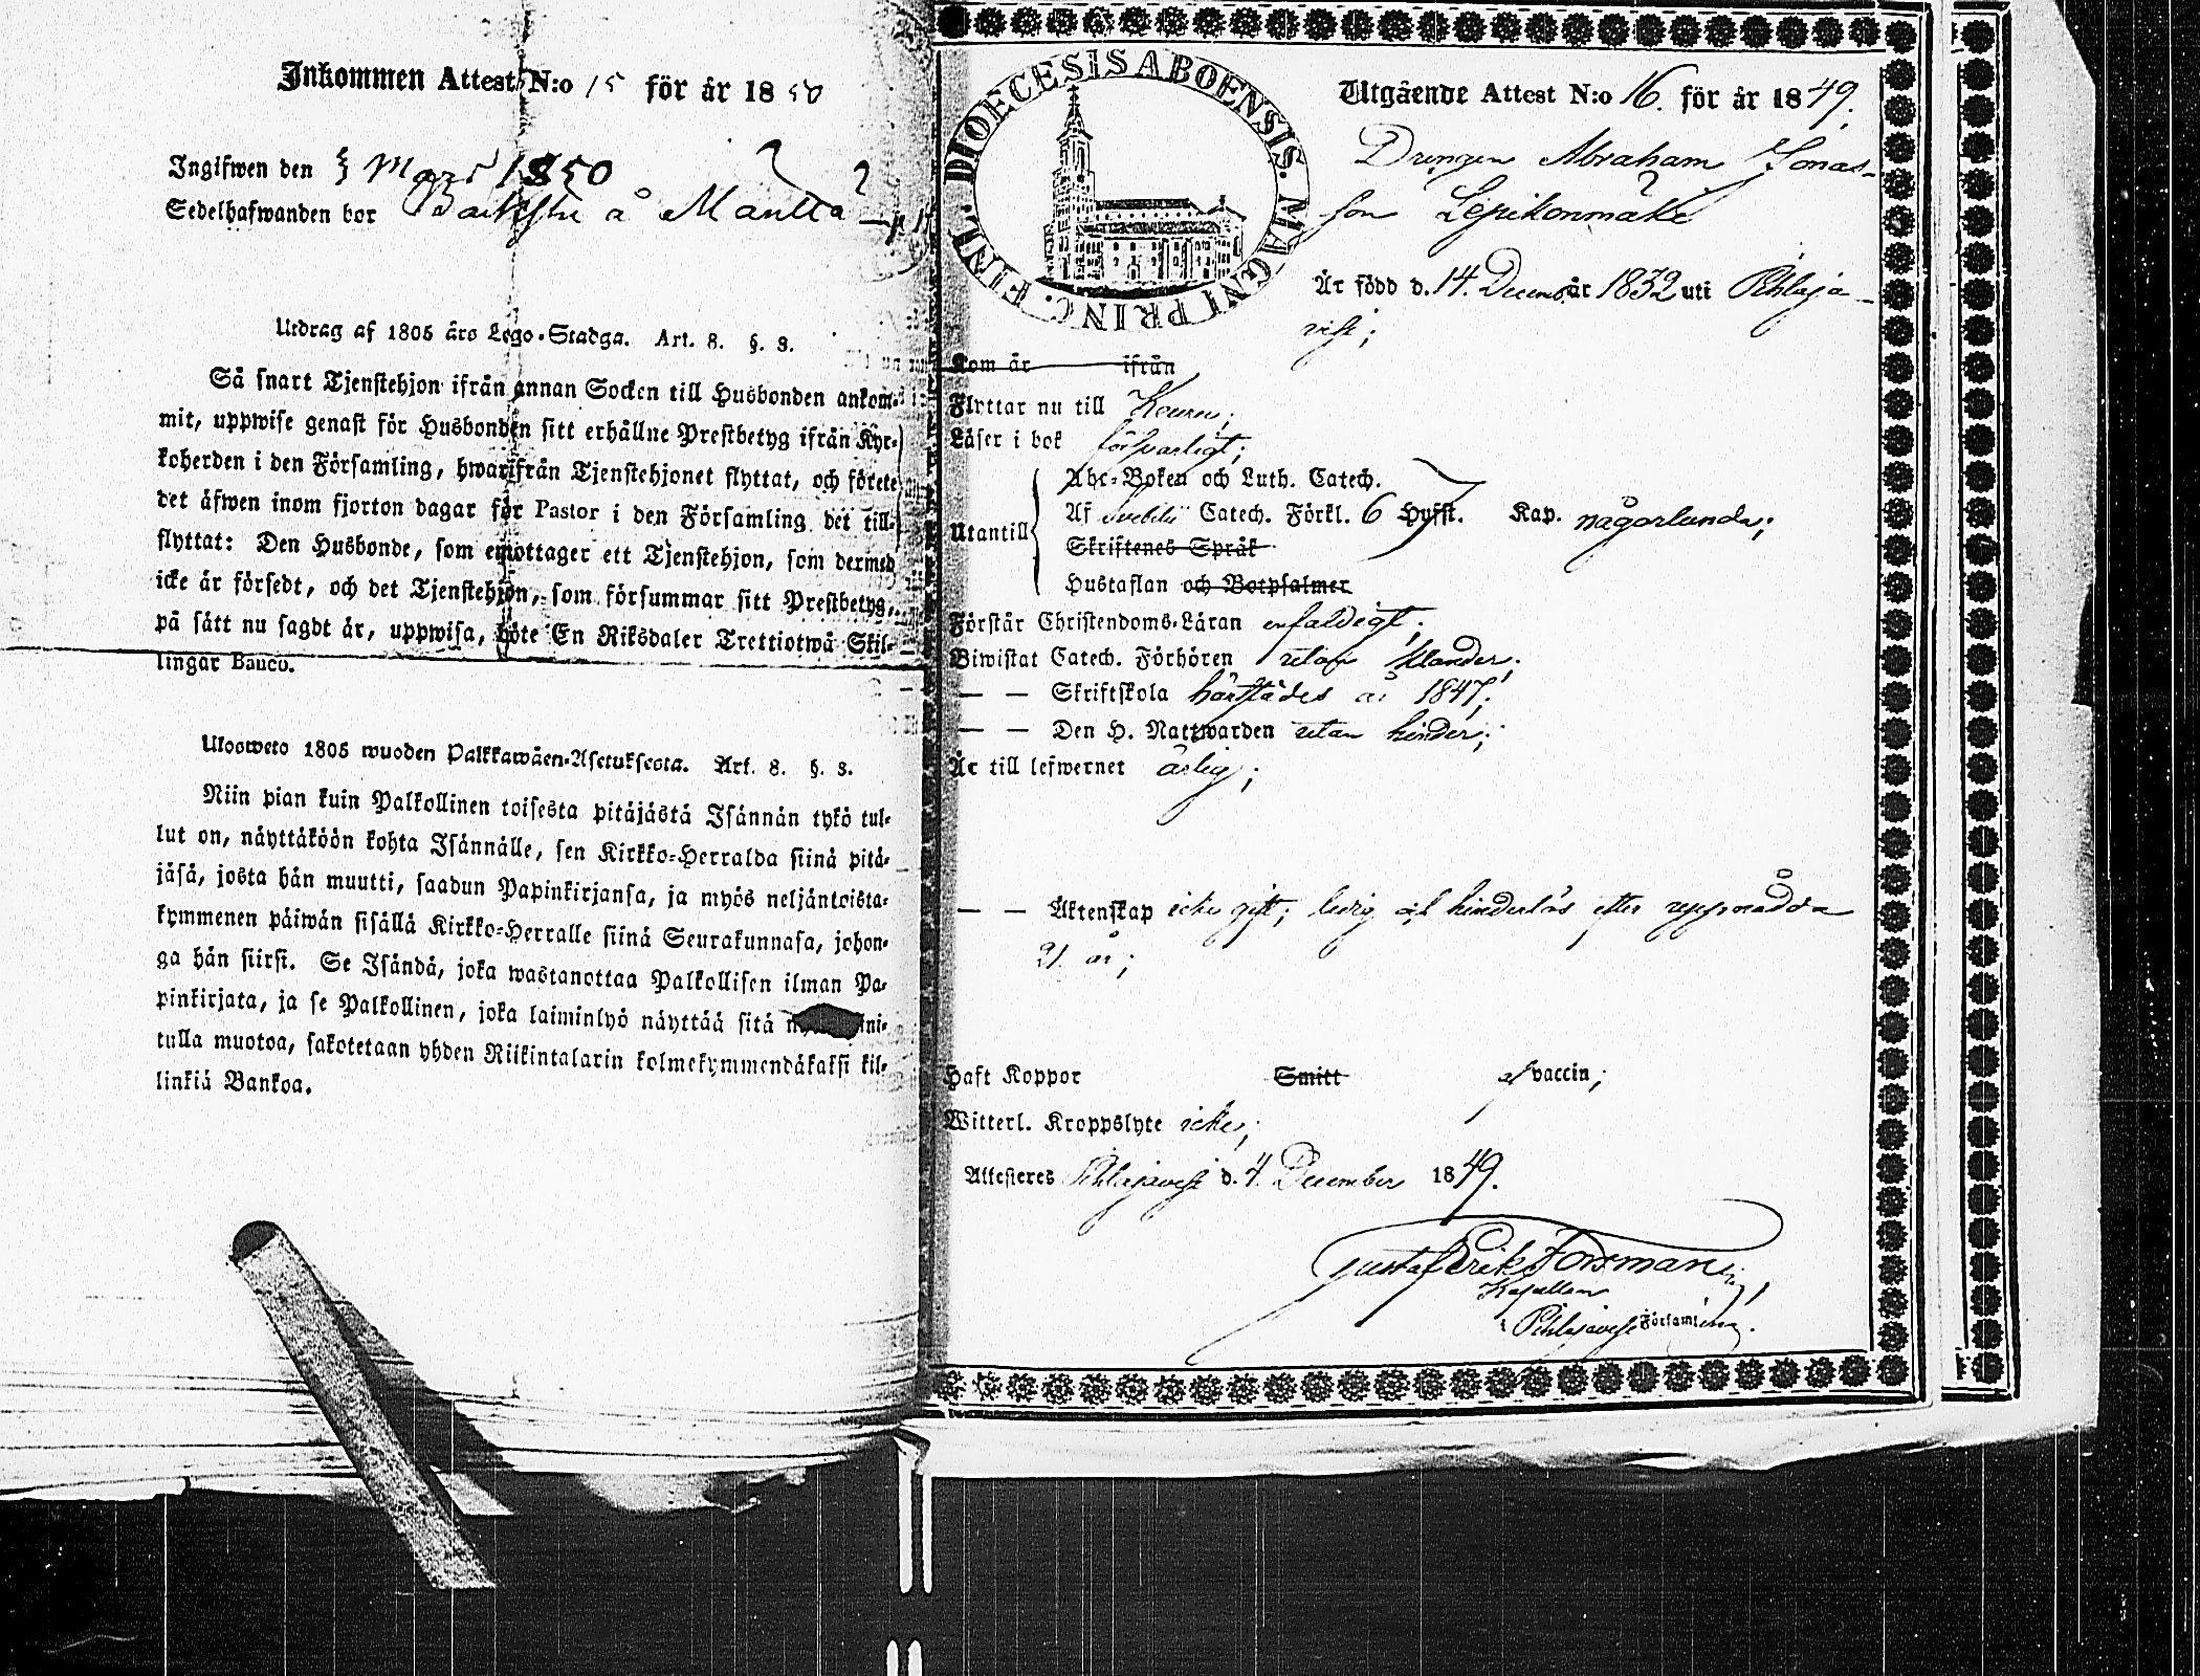 Inkommen Attest N:o 15 för år 1850
Ingifwen den Mars 1850
Sedelhafwanden bor å Mänttä
Utdrag af 1805 års Lego-Stadga. Art. 8. §. 3.
Så snart Tjenstehjon ifrån annan Socken till Husbonden ankom-
mit, uppwise genast för Husbonden sitt erhållne Prestbetyg ifrån Kyr-
koherden i den Församling, hwarifrån Tjenstehjonet flyttat, och förete
det äfwen inom fjorton dagar för Pastor i den Församling det till-
flyttat: Den Husbonde, som emottager ett Tjenstehjon, som dermed
icke är försedt, och det Tjenstehjon, som försummar sitt Prestbetyg,
på sätt nu sagdt är, uppwisa, böte En Riksdaler Trettiotwå Skil-
lingar Banco.
Ulosweto 1805 wuoden Palkkawäen-Asetuksesta. Art. 8. §. 3.
Niin pian kuin Palkollinen toisesta pitäjästä Isännän tykö tul-
lut on, näyttäköön kohta Isännälle, sen Kirkko-Herralda siinä pitä-
jäsä, josta hän muutti, saadun Papinkirjansa, ja myös neljäntoista-
kymmenen päiwän sisällä Kirkko-Herralle siinä Seurakunnasa, johon-
ga hän siirsi. Se Isändä, joka wastanottaa Palkollisen ilman Pa-
pinkirjata, ja se Palkollinen, joka laiminlyö näyttää sitä
tulla muotoa, sakotetaan yhden Riikintalarin kolmekymmendäkaksi kil-
linkiä Bankoa.
FINL. DIOECESIS ABOENSIS. MAGNI PRINC.
Utgående Attest N:o 16. för år 1849.
Drengen Abraham Jonas-
son Lepikonmäki
Är född d. 14. Decemb. år 1832 uti Pihlaja-
vesi;
Kom år ifrån
Flyttar nu till Keuru;
Läser i bok försvarligt;
Abc-Boken och Luth. Catech.
Utantill Af Svebilii Catech. Förkl. 6 Hufst. Kap. någorlunda;
Skriftenes Språk
Hustaflan och Botpsalmer
Förstår Christendoms-Läran enfaldigt;
Biwistat Catech. Förhören utan klander;
— — Skriftskola härstädes år 1847;
— — Den H. Nattwarden utan hinder;
Är till lefwernet ärlig;
— — Äktenskap icke gift; ledig och hinderlös efter uppnådda
21. år;
Haft Koppor Smitt af vaccin;
Witterl. Kroppslyte icke;
Attesteres Pihlajavesi d. 4. December 1849.
Gustaf Erik Forsman
Kapellan
i Pihlajavesi Församling.